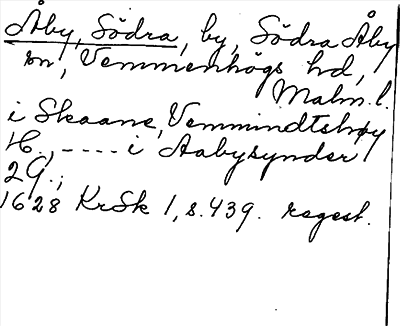 Åby, Södra, by, Södra Åby
sn, Vemmenhögs hd,
Malm. l.
i Skaane, Vemmindtshøy
H., ---- i Aabysynder
2G.;
1628 KrSk 1, s. 439. regest.